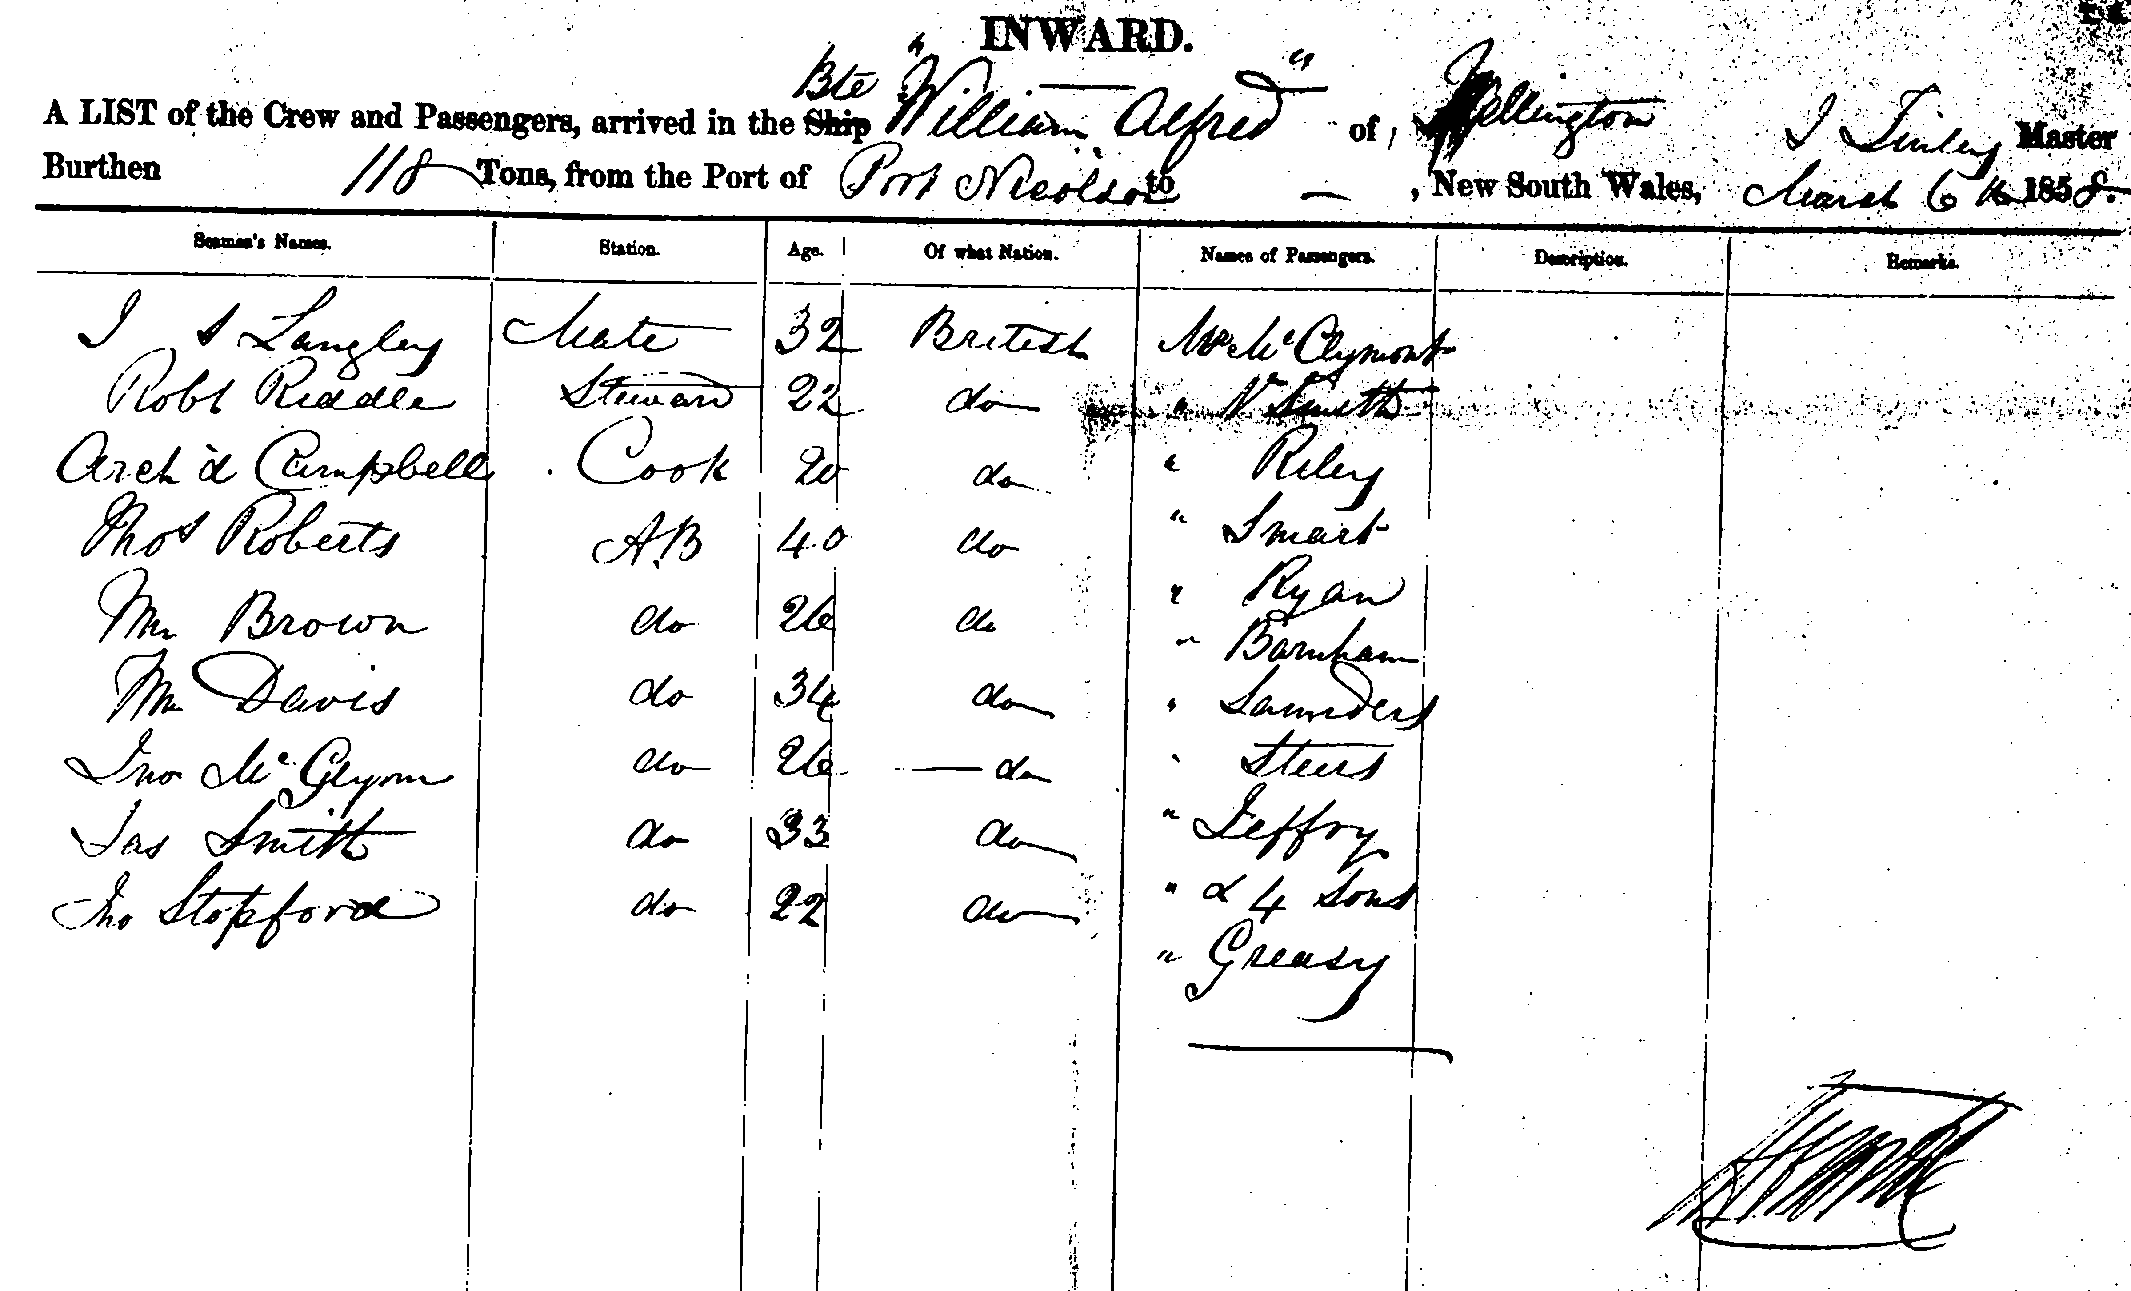 INWARD.
A LIST of the Crew and Passengers, arrived in the Ship Bte "William Alfred" of Wellington J Tinley Master
Burthen 118 Tons, from the Port of Port Nicolson to — , New South Wales, March 6th 1858.
Seamen's Names. Station. Age. Of what Nation. Names of Passengers. Description. Remarks.
J S Langley Mate 32 British Mr McClymont
Robt Riddle Steward 22 do " Smith
Archd Campbell Cook 20 do " Riley
Thos Roberts A.B 40 do " Smart
Wm Brown do 26 do " Ryan
" Barnham
Wm Davis do 34 do " Saunders
Jno McGlynn do 26 do "
Jas Smith do 33 do " Jeffry
Jno Stopford do 22 do " & 4 Sons
" Greasy